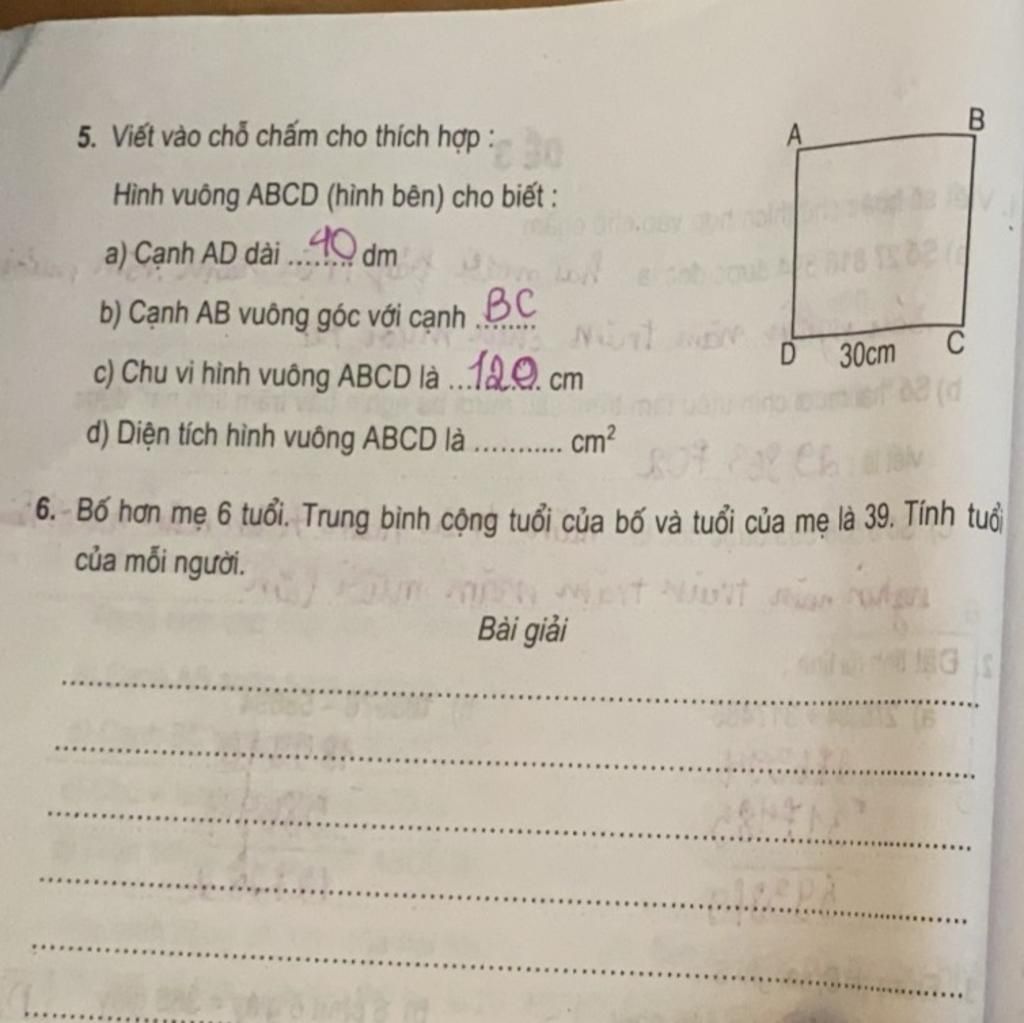 5. Viết vào chỗ chấm cho thích hợp :
Hình vuông ABCD (hình bên) cho biết :
a) Cạnh AD dài ...40... dm
b) Cạnh AB vuông góc với cạnh ...BC...
c) Chu vi hình vuông ABCD là ...120... cm
d) Diện tích hình vuông ABCD là ........... cm²
A
B
D
30cm
C
6. Bố hơn mẹ 6 tuổi. Trung bình cộng tuổi của bố và tuổi của mẹ là 39. Tính tuổi
của mỗi người.
Bài giải